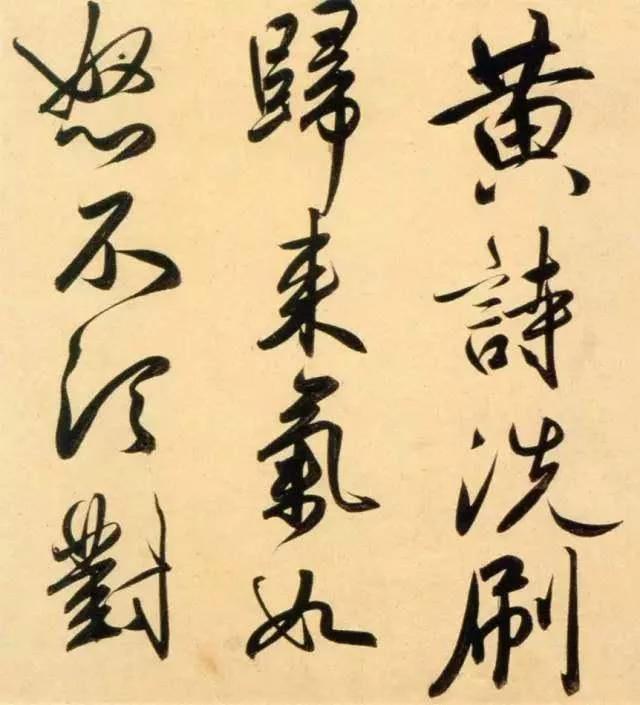 黄詩洗刷
歸來氣如
怒不須對